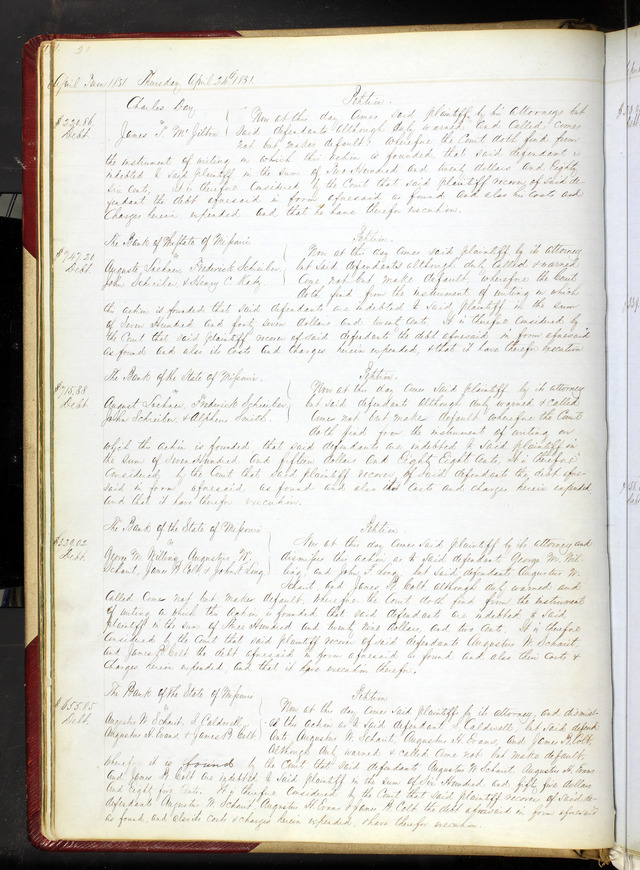 21
April Term 1851 Thursday April 24th 1851.
Charles Day Petition.
$220.86 vs Now at this day comes said plaintiff by his attorneys but
Debt James T. McGilton said defendant although duly warned and called comes
not but makes default: wherefore the Court doth find from
the instrument of writing on which this action is founded that said defendant is
indebted to said plaintiff in the sum of Two Hundred and twenty dollars and Eighty
Six Cents, It is therefore Considered by the Court that said plaintiff recover of said de-
fendant the debt aforesaid in form aforesaid as found and also his Costs and
Charges herein expended and that he have therefor execution.
The Bank of the State of Missouri Petition.
$747.20 vs Now at this day comes said plaintiff by its attorney
Debt Frederick Scheiber but said defendants although duly called & warned
John Scheiber & Henry C. come not but make default wherefore the Court
doth find from the instrument of writing on which
the action is founded that said defendants are indebted to said plaintiff in the sum
of Seven Hundred and forty seven dollars and twenty Cents. It is therefore considered by
the Court that said plaintiff recover of said defendants the debt aforesaid in form aforesaid
as found and also its Costs and Charges herein expended, & that it have therefor execution
The Bank of the State of Missouri. Petition.
$715.88 vs Now at this day comes said plaintiff by its attorney
Debt August Frederick Scheiber but said defendants although duly warned & called
John Scheiber & Alpheus Smith. Come not but make default wherefore the Court
doth find from the instrument of writing on
which the action is founded, that said defendants are indebted to said plaintiff in
the sum of Seven Hundred and fifteen dollars and Eighty Eight Cents, It is therefore
Considered by the Court that said plaintiff recover of said defendants the debt afore-
said in form aforesaid as found and also its Costs and charges herein expended
and that it have therefor execution.
The Bank of the State of Missouri Petition
vs Now at this day comes said plaintiff by its attorney and
Debt. George M. Augustus W. dismisses the action as to said defendants George M.
Schaut, James B Colt & John F. Long and John F. Long but said defendants Augustus W.
Schaut and James B Colt although duly warned and
Called Come not but make default, wherefore the Court doth find from the instrument
of writing on which the action is founded that said defendants are indebted to said
plaintiff in the sum of Three Hundred and twenty nine dollars and two Cents. It is therefore
Considered by the Court that said plaintiff recover of said defendants Augustus W. Schaut,
and James B Colt the debt aforesaid in form aforesaid as found and also their Costs &
Charges herein expended, and that it have execution therefor.
The Bank of the State of Missouri Petition
$655.85 vs Now at this day comes said plaintiff by its attorney, and dismiss-
Debt. Augustus W Schaut, Caldwell, es the action as to said defendant Caldwell, but said defend
Augustus H. Evans & James B Colt ants Augustus W. Schaut, Augustus H. Evans and James B. Colt,
Although duly warned & called come not, but make default,
wherefore it is found by the Court that said defendants Augustus W. Schaut, Augustus H. Evans
and James B Colt are indebted to said plaintiff in the sum of Six Hundred and fifty five dollars
and eighty five Cents. It is therefore Considered by the Court that said plaintiff recover of said de-
fendants Augustus W. Schaut, Augustus H. Evans & James B Colt the debt aforesaid in form aforesaid
as found, and also its costs & charges herein expended, & have therefor execution.